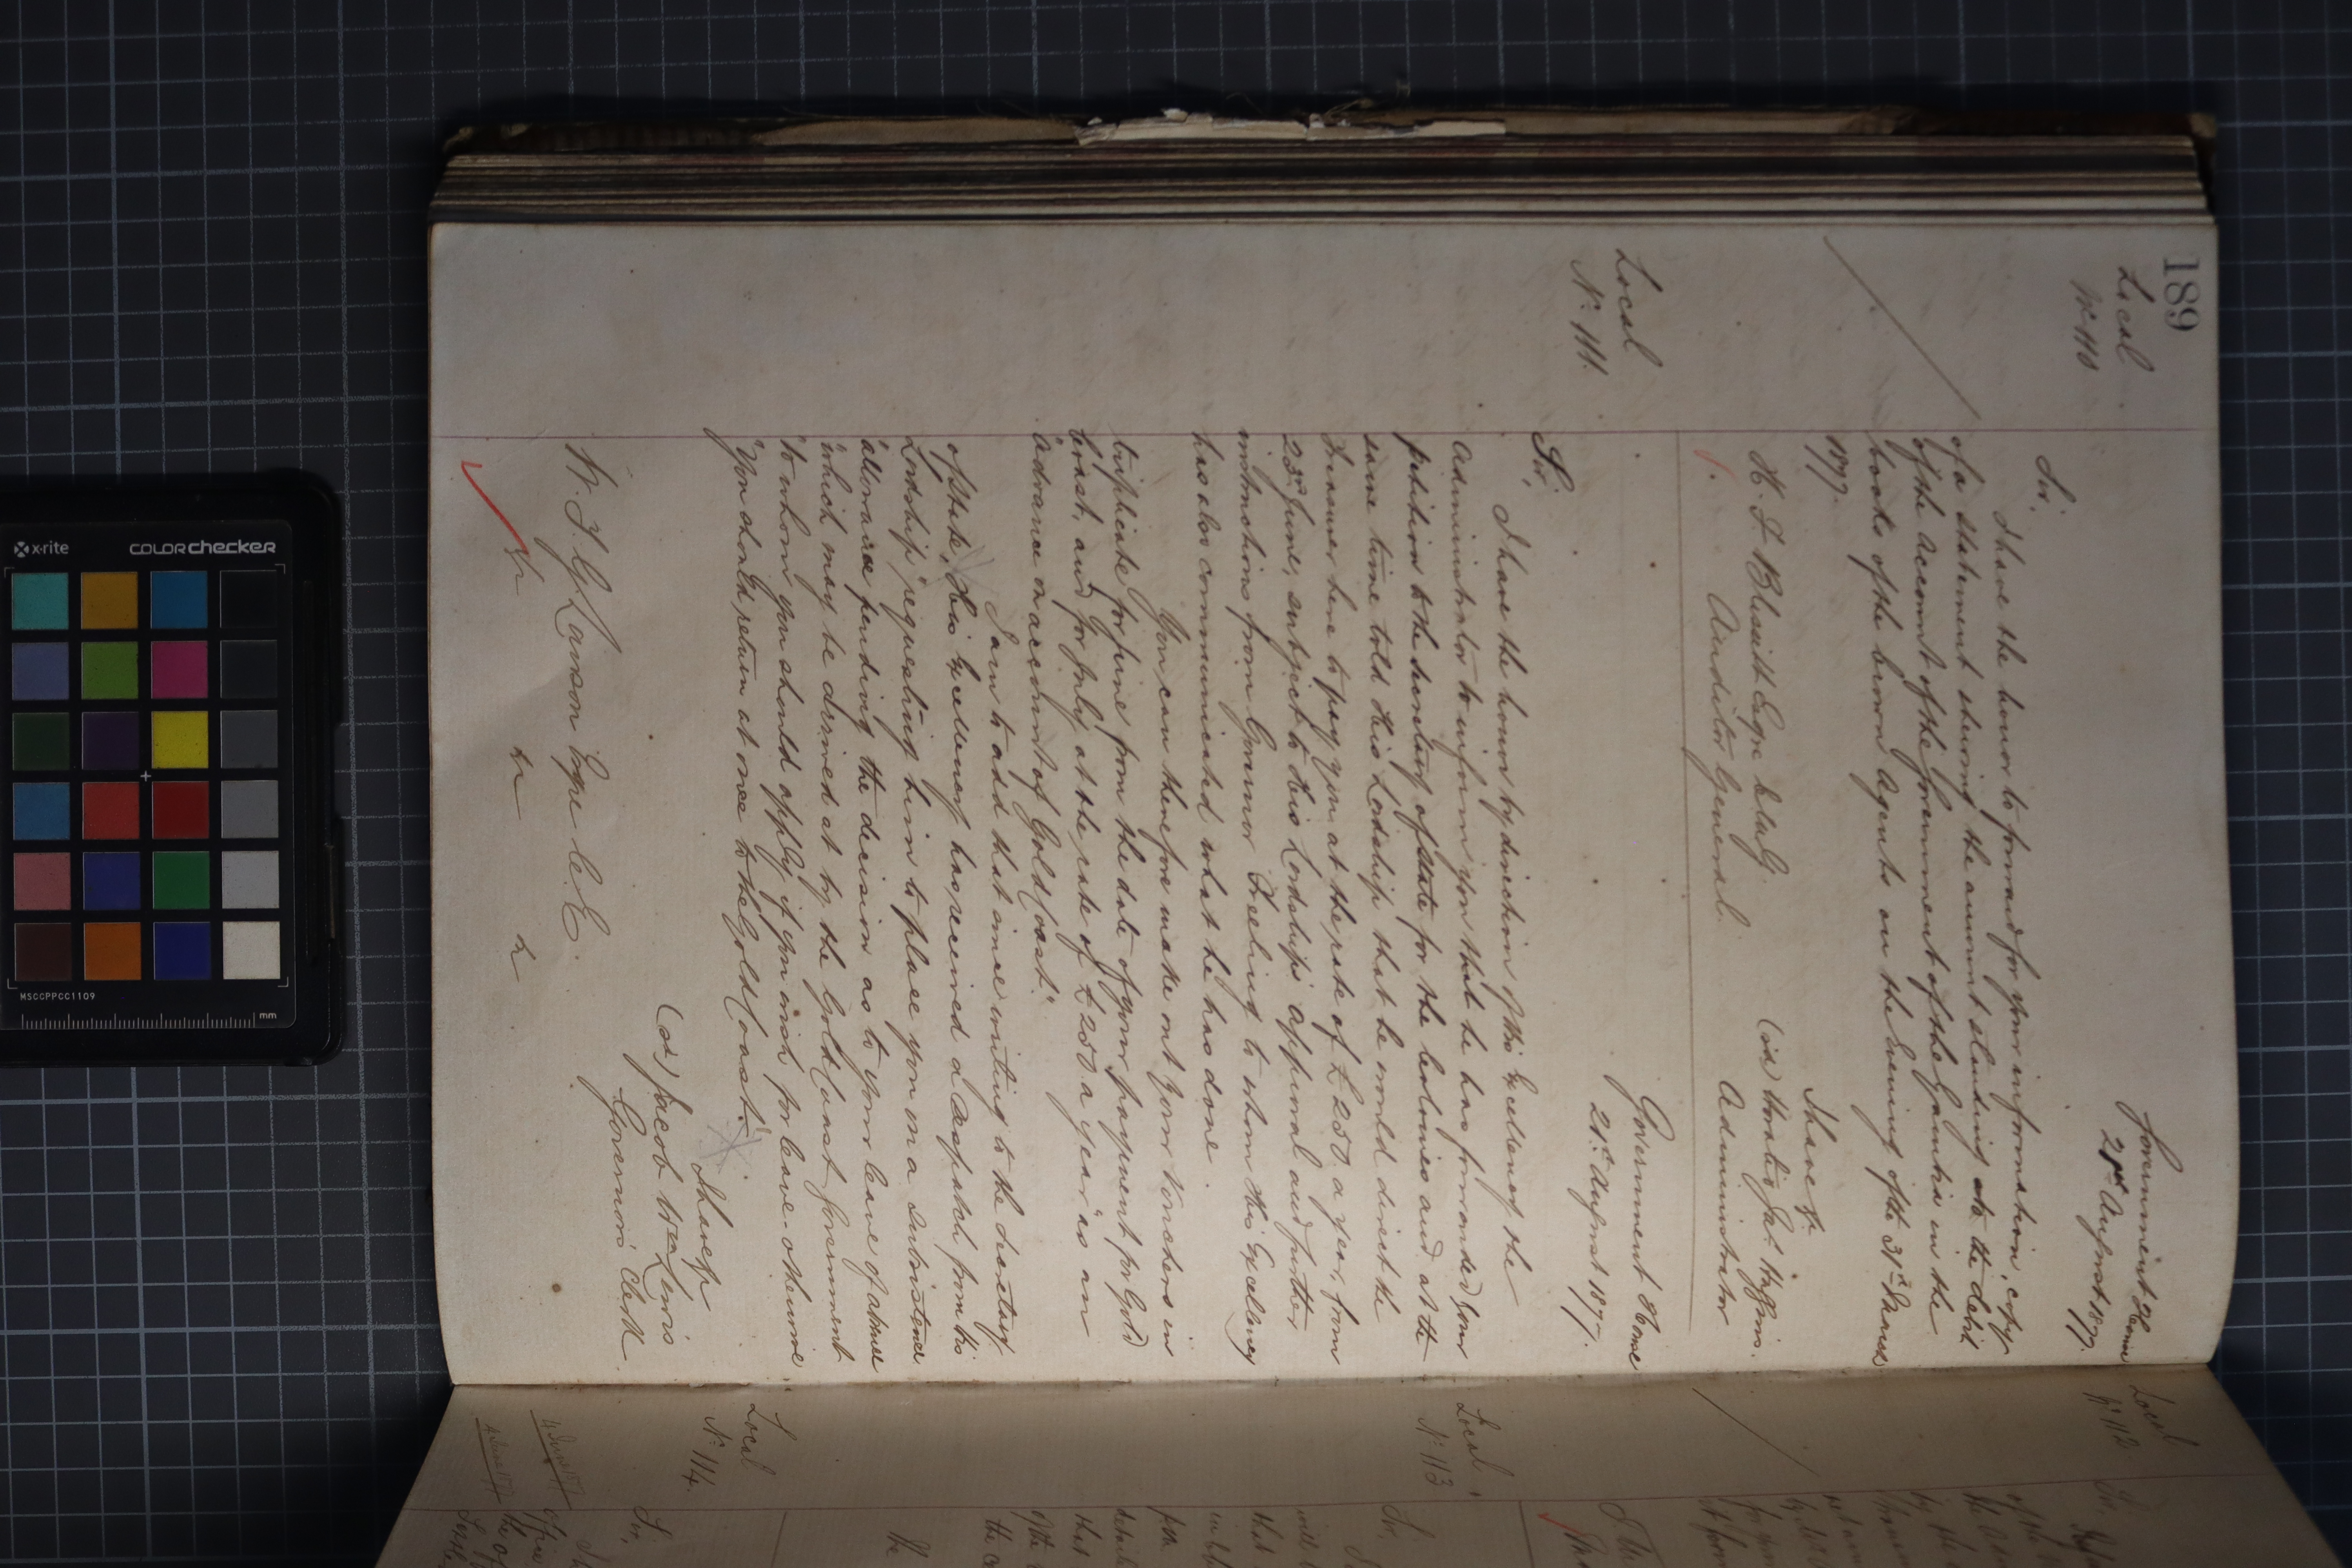 189
Local
No 110
Government House
21st August 1877.
Sir,
I have the honor to forward for your information, copy
of a statement shewing the amount standing to the debit
of the account of the Government of the Gambia in the
books of the Crown Agents on the Evening of the 31st March
1877.
I have &c.
Administrator
H. T. Blissett Esqre
Auditor General.
Local
No. 111.
Government House
21st August 1877.
Sir,
I have the honor by direction of His Excellency the
Administrator to inform you that he has forwarded your
petition to the Secretary of State for the Colonies and at the
same time told His Lordship that he would direct the
Treasurer here to pay you at the rate of £250 a year, from
23rd June, subject to His Lordship's approval and further
instructions from Governor Freeling to whom His Excellency
has also communicated what he has done.
You can therefore make out your Vouchers in
triplicate for June from the date of your payment for Gold
Coast, and for July at the rate of £250 a year "as an
"advance on account of Gold Coast."
I am to add that since writing to the Secretary
of State, His Excellency has received a Despatch from His
Lordship "requesting him to place you on a subsistence
"allowance pending the decision as to your leave of absence
"which may be arrived at by the Gold Coast Government
"to whom you should apply if you wish for leave - otherwise
"you should return at once to the Gold Coast."
I have &c
Governor's Clerk
C.E.
Local
No 112
Local
No. 113
Sir,
Local
No. 114.
Sir,
x-rite
colorchecker
MSCCPPCC1109
mm